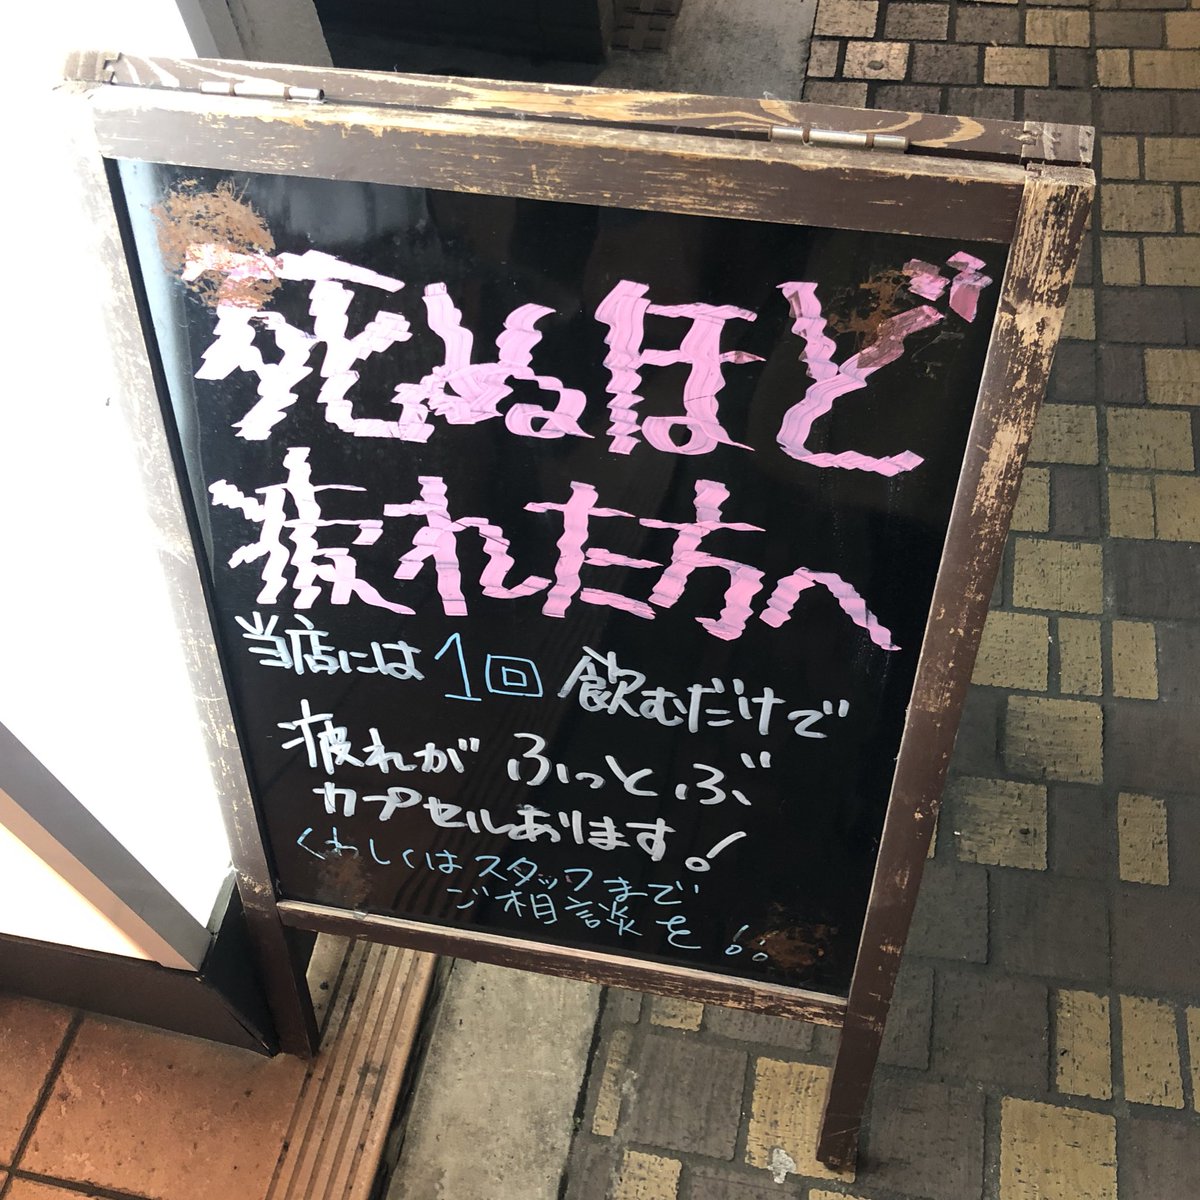 死ぬほど
疲れた方へ
当店には1回飲むだけで
疲れがふっとぶ
カプセルあります!
くわしくはスタッフまで
ご相談を!!